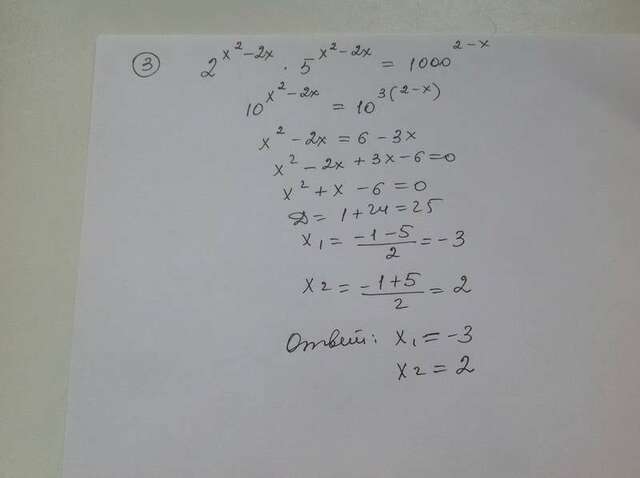 ③ 2^(x²-2x) · 5^(x²-2x) = 1000^(2-x)
10^(x²-2x) = 10^(3(2-x))
x² - 2x = 6 - 3x
x² - 2x + 3x - 6 = 0
x² + x - 6 = 0
D = 1 + 24 = 25
x₁ = (-1-5)/2 = -3
x₂ = (-1+5)/2 = 2
Ответ: x₁ = -3
x₂ = 2